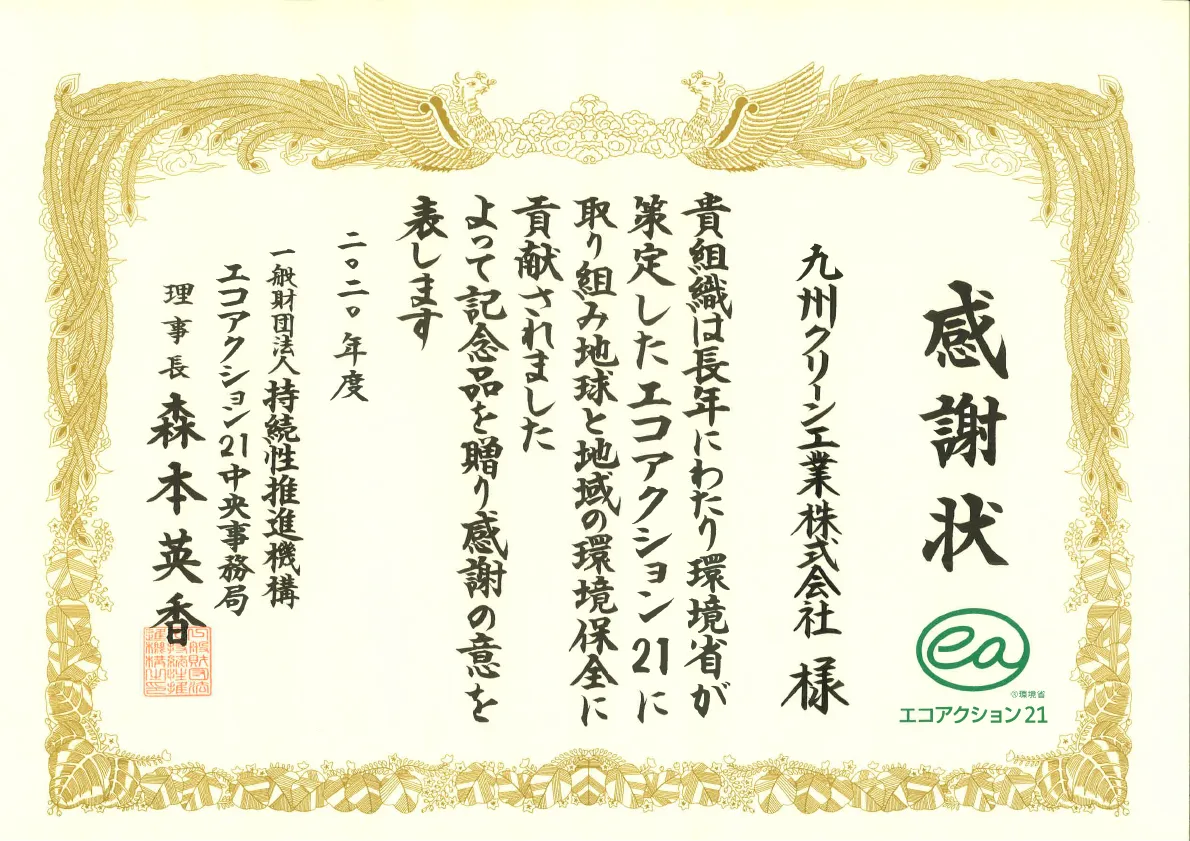 感謝状
九州クリーン工業株式会社 様
貴組織は長年にわたり環境省が
策定したエコアクション21に
取り組み地球と地域の環境保全に
貢献されました
よって記念品を贈り感謝の意を
表します
二〇二〇年度
一般財団法人 持続性推進機構
エコアクション21中央事務局
理事長 森本英香
ea
環境省
エコアクション21